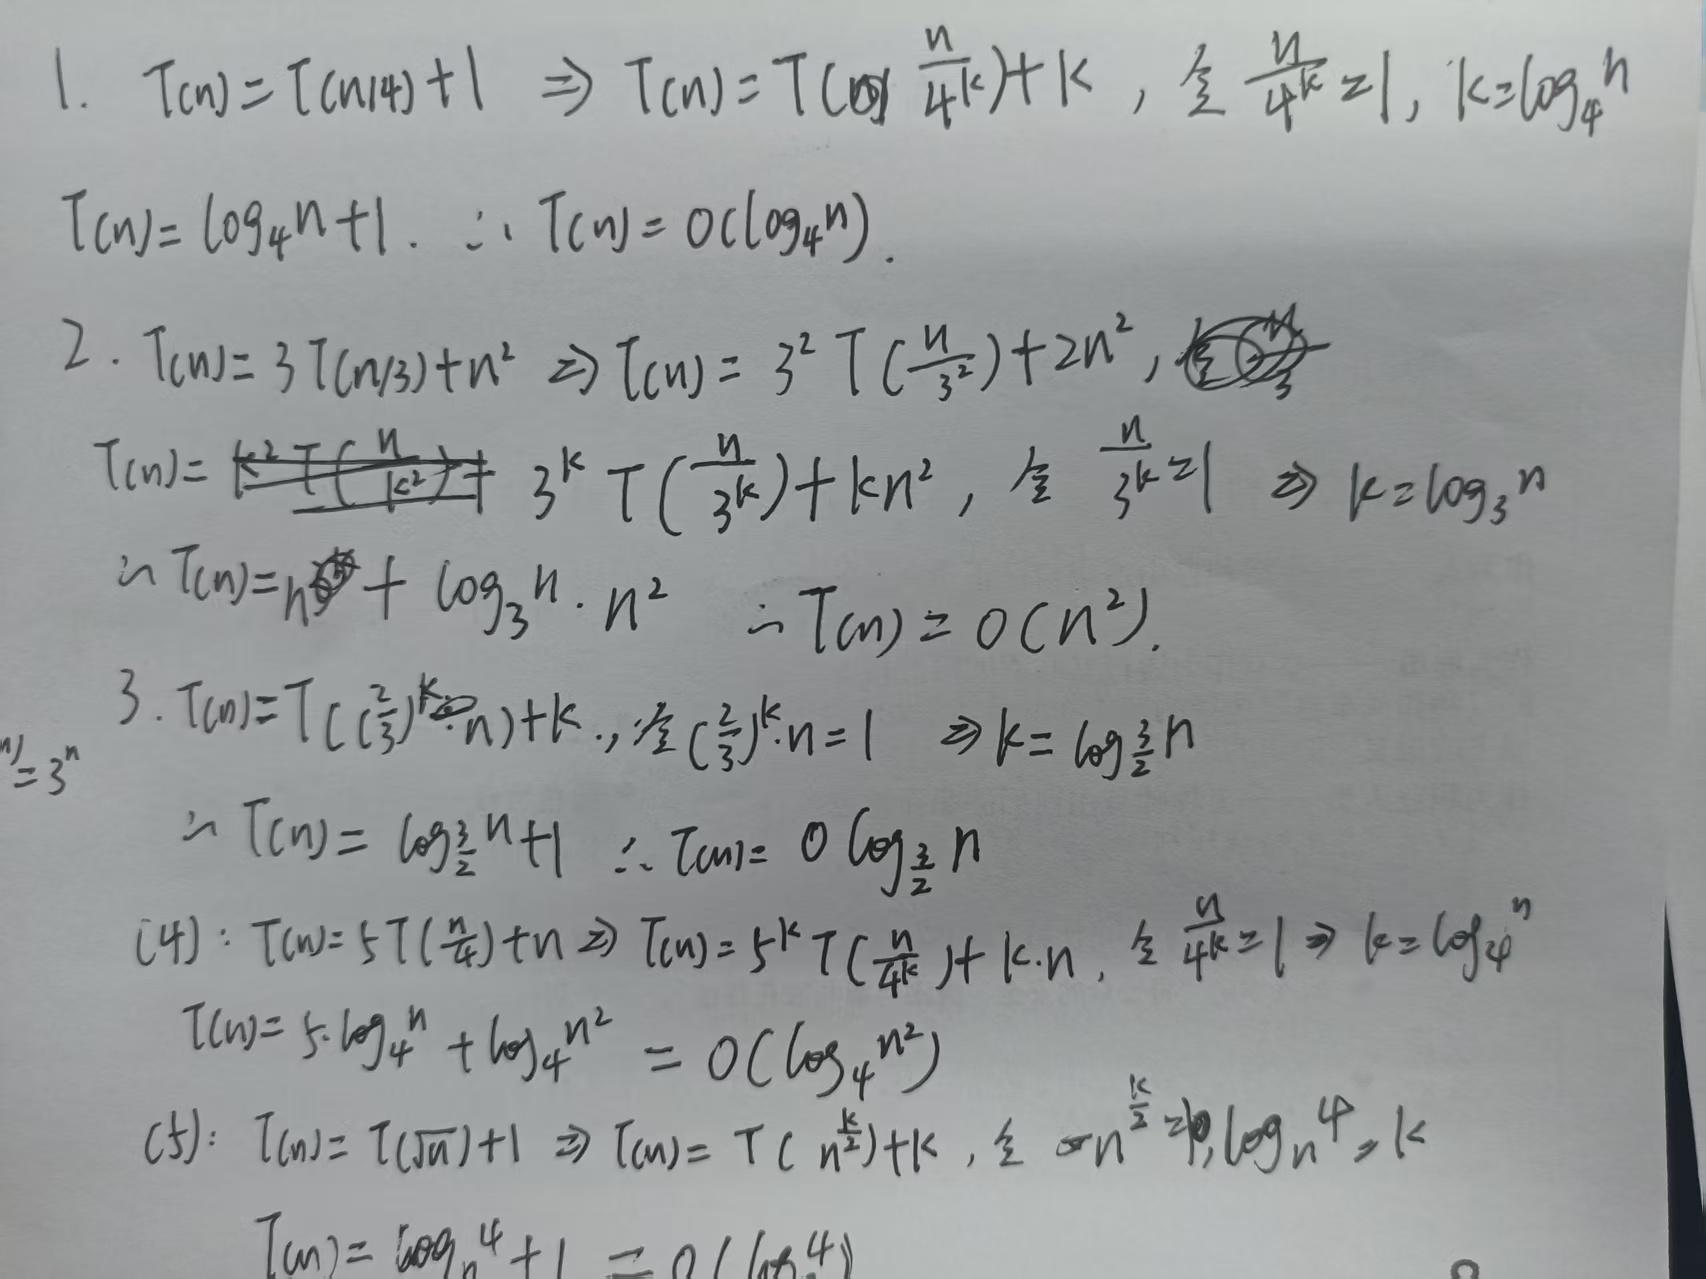 1. T(n)=T(n/4)+1 ⇒ T(n)=T(n/4^k)+k, 令 n/4^k=1, k=log_4 n
T(n)=log_4 n+1. ∴ T(n)=O(log_4 n).
2. T(n)=3T(n/3)+n² ⇒ T(n)=3²T(n/3²)+2n²,
T(n)=3^k T(n/3^k)+kn², 令 n/3^k=1 ⇒ k=log_3 n
∴ T(n)=n+log_3 n·n² ∴ T(n)=O(n²).
3. T(n)=T((2/3)^k·n)+k., 令(2/3)^k·n=1 ⇒ k=log_{3/2} n
=3^n
∴ T(n)=log_{3/2} n+1 ∴ T(n)=O log_{3/2} n
(4): T(n)=5T(n/4)+n ⇒ T(n)=5^k T(n/4^k)+k·n, 令 n/4^k=1 ⇒ k=log_4 n
T(n)=5·log_4 n+log_4 n²=O(log_4 n²)
(5): T(n)=T(√n)+1 ⇒ T(n)=T(n^{k/2})+k, 令 n^{k/2}= , log_n 4=k
T(n)=log_n 4+1=O(log 4)